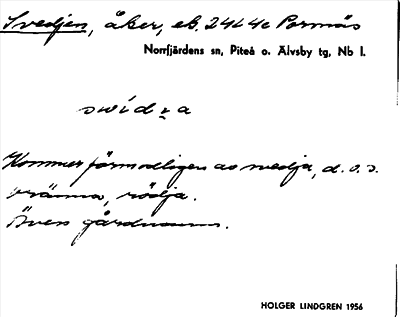 Svedjen, åker, eb. 24L4c Pormäs
Norrfjärdens sn, Piteå o. Älvsby tg, Nb l.
swídza
Kommer förmodligen av svedja, d.v.s.
bränna, rödja.
Även gårdnamn.
HOLGER LINDGREN 1956